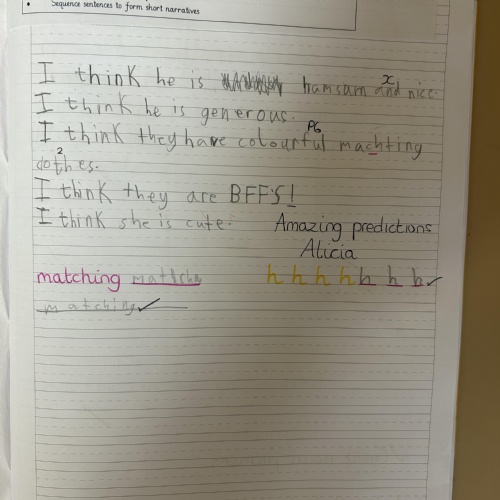 Sequence sentences to form short narratives
x
I think he is hamsam and nice.
I think he is generous.
PG
I think they have colourful machting
2
clothes.
I think they are BFF'S!
I think she is cute. Amazing predictions
Alicia
matching h h h h h h h ✓
matching ✓